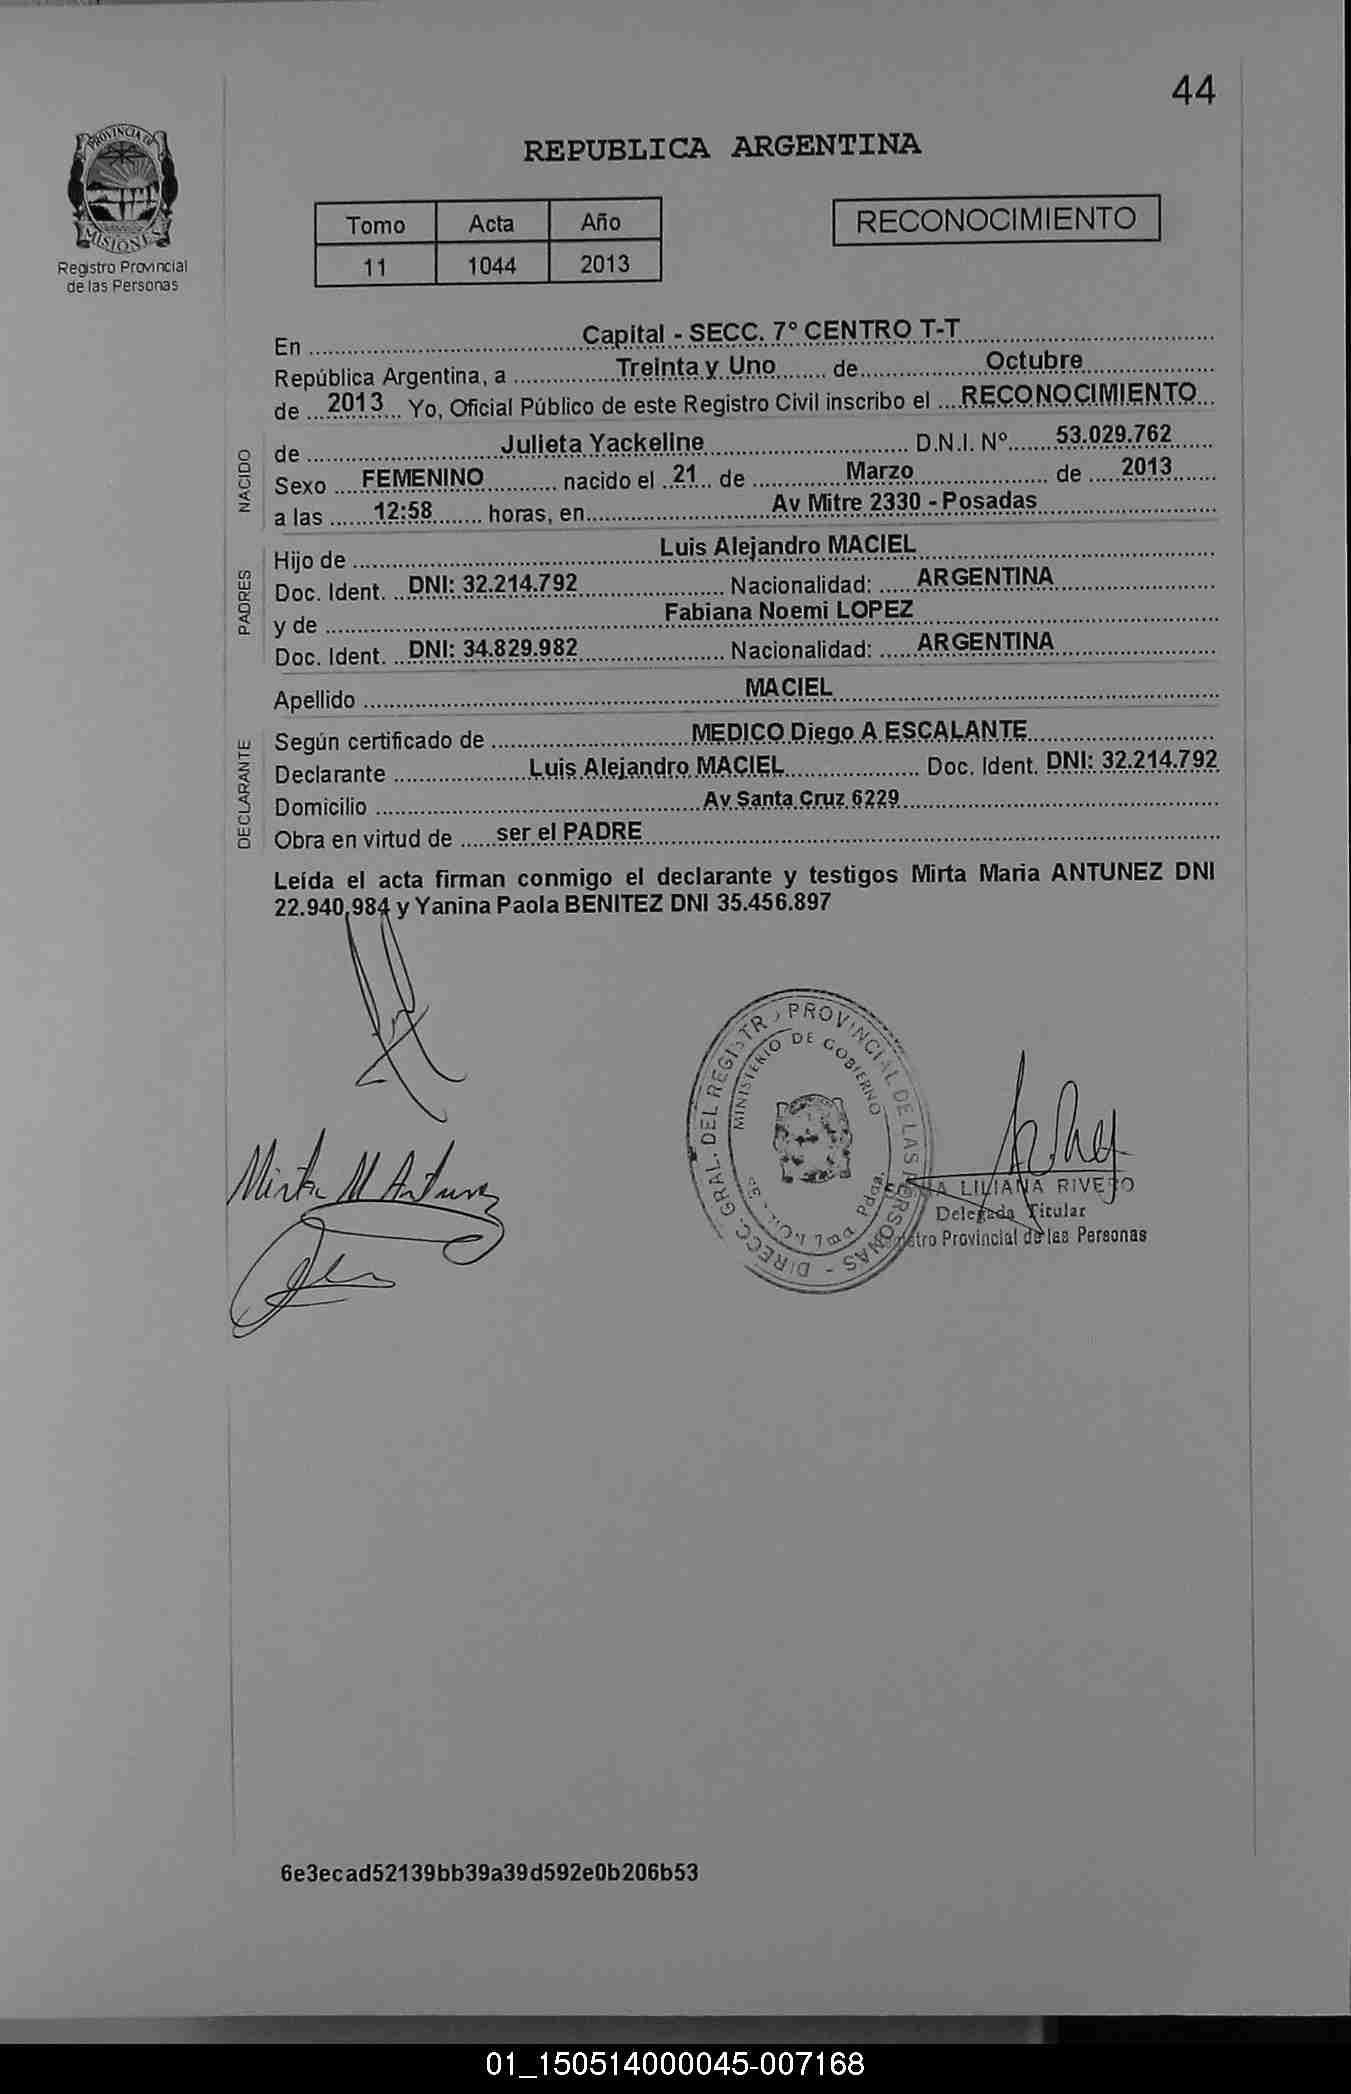 44
PROVINCIA DE
MISIONES
Registro Provincial
de las Personas
REPUBLICA ARGENTINA
Tomo Acta Año
11 1044 2013
RECONOCIMIENTO
En Capital - SECC. 7° CENTRO T-T
República Argentina, a Treinta y Uno de Octubre
de 2013 Yo, Oficial Público de este Registro Civil inscribo el RECONOCIMIENTO
NACIDO
de Julieta Yackeline D.N.I. N° 53.029.762
Sexo FEMENINO nacido el 21 de Marzo de 2013
a las 12:58 horas, en Av Mitre 2330 - Posadas
PADRES
Hijo de Luis Alejandro MACIEL
Doc. Ident. DNI: 32.214.792 Nacionalidad: ARGENTINA
y de Fabiana Noemi LOPEZ
Doc. Ident. DNI: 34.829.982 Nacionalidad: ARGENTINA
Apellido MACIEL
DECLARANTE
Según certificado de MEDICO Diego A ESCALANTE
Declarante Luis Alejandro MACIEL Doc. Ident. DNI: 32.214.792
Domicilio Av Santa Cruz 6229
Obra en virtud de ser el PADRE
Leída el acta firman conmigo el declarante y testigos Mirta Maria ANTUNEZ DNI
22.940.984 y Yanina Paola BENITEZ DNI 35.456.897
DIRECC. GRAL. DEL REGISTRO PROVINCIAL DE LAS PERSONAS
MINISTERIO DE GOBIERNO
Mirta M Antunez
LILIANA RIVERO
Delegada Titular
Provincial de las Personas
6e3ecad52139bb39a39d592e0b206b53
01_150514000045-007168